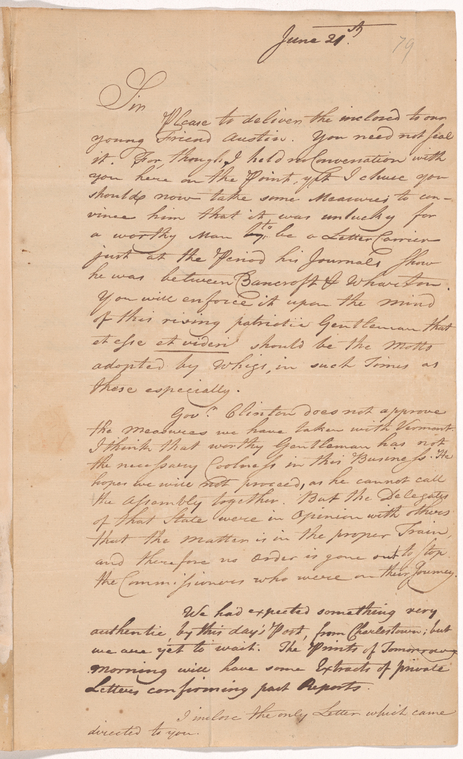 June 21st.
79
Sir
Please to deliver the inclosed to our
young Friend Austin. You need not seal
it. For though I held no Conversation with
you here on the Point, yet I chuse you
should now take some Measures to con-
vince him that it was unlucky for
a worthy Man to be a Letter Carrier
just at the Period his Journals show
he was between Bancroft & Wharton.
You will enforce it upon the mind
of this rising patriotic Gentleman that
et esse et videri should be the Motto
adopted by Whigs, in such Times as
these especially.
Govr. Clinton does not approve
the measures we have taken with Vermont
I think that worthy Gentleman has not
the necessary Coolness in this Business. He
hopes we will not proceed, as he cannot call
the Assembly together. But the Delegates
of that State were in Opinion with others
that the matter is in the proper Train,
and therefore no order is gone out to stop
the Commissioners who were on their Journey.
We had expected something very
authentic, by this day's Post, from Charlestown; but
we are yet to wait. The Prints of Tomorrow
morning will have some Extracts of private
Letters confirming past Reports.
I inclose the only Letter which came
directed to you.